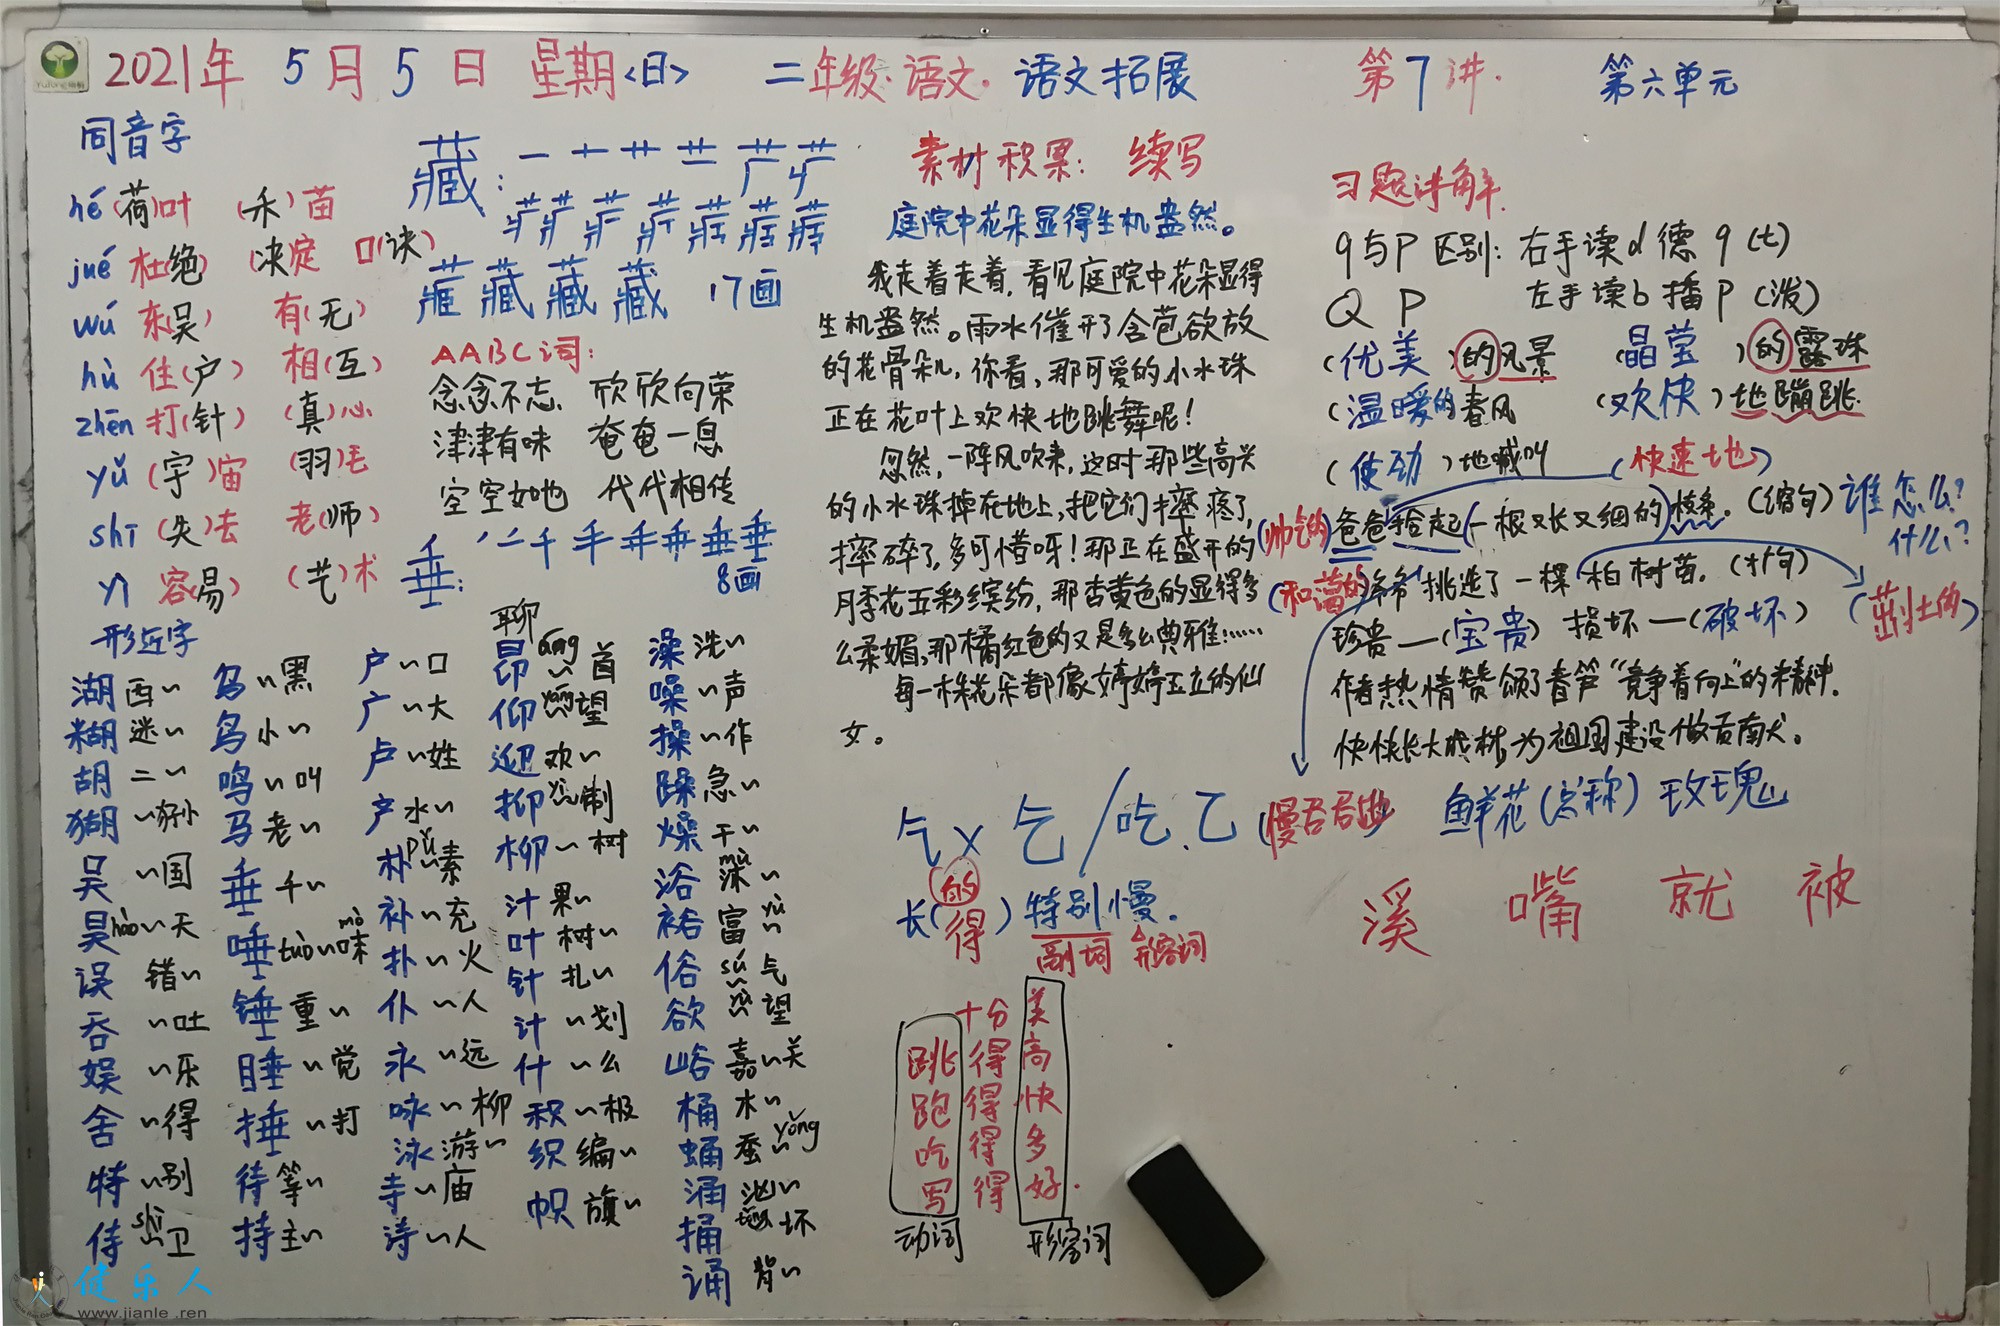 2021年 5月5日 星期<日> 二年级·语文· 语文拓展 第7讲· 第六单元
同音字
hé (荷)叶 (禾)苗
jué 杜(绝) (决)定 口(诀)
wú 东(吴) 有(无)
hù 住(户) 相(互)
zhēn 打(针) (真)心
yǔ (宇)宙 (羽)毛
shī (失)去 老(师)
yì 容(易) (艺)术
藏:
17画
AABC词:
念念不忘、 欣欣向荣
津津有味 奄奄一息
空空如也 代代相传
垂:
8画
形近字
湖 西~
糊 迷~
胡 二~
猢 ~狲
吴 ~国
昊 hào ~天
误 错~
吞 ~吐
娱 ~乐
舍 ~得
特 ~别
侍 shì ~卫
乌 ~黑
鸟 小~
鸣 ~叫
马 老~
垂 千~
唾 tuò ~沫 mò
锤 重~
睡 ~觉
捶 ~打
待 等~
持 主~
户 ~口
广 ~大
卢 ~姓
产 水~
朴 pǔ ~素
补 ~充
扑 ~火
仆 ~人
永 ~远
咏 ~柳
泳 游~
寺 ~庙
诗 ~人
聊
昂 áng ~首
仰 ~望
迎 欢~
抑 yì ~制
柳 ~树
汁 果~
叶 树~
针 扎~
计 ~划
什 ~么
积 ~极
织 编~
帜 旗~
澡 洗~
噪 ~声
操 ~作
躁 急~
燥 干~
浴 沐 mù ~
裕 富 yù ~
俗 sú ~气
欲 yù ~望
峪 嘉~关
桶 水~
蛹 蚕~ yǒng
涌 汹~
捅 ~坏
诵 背~
素材积累: 续写
庭院中花朵显得生机盎然。
我走着走着,看见庭院中花朵显得
生机盎然。雨水催开了含苞欲放
的花骨朵儿,你看,那可爱的小水珠
正在花叶上欢快地跳舞呢!
忽然,一阵风吹来,这时那些高兴
的小水珠掉在地上,把它们摔疼了,
摔碎了,多可惜呀!那正在盛开的
月季花五彩缤纷,那杏黄色的显得多
么柔媚,那橘红色的又是多么典雅!……
每一株花朵都像婷婷玉立的仙
女。
气 × 乞 / 吃. 乙
(的)
长(得) 特别慢.
副词 形容词
十分 美
跳 得 高
跑 得 快
吃 得 多
写 得 好.
动词 形容词
习题讲解.
q与p 区别: 右手读d 德 q (t)
Q P 左手读b 播 p (泼)
(优美)的风景 (晶莹)的露珠
(温暖的春风 (欢快)地蹦跳.
(使劲)地喊叫 (快速地)
(帅气的)爸爸拾起(一根又长又细的)枝条。(缩句) 谁 怎么?
什么?
(和蔼的)爷爷挑选了一棵柏树苗.(扩句) (茁壮的)
珍贵—(宝贵) 损坏—(破坏)
作者热情赞颂了春笋“竞争着向上”的精神.
快快长大成材,为祖国建设做贡献。
(慢吞吞地) 鲜花(总称) 玫瑰
溪 嘴 就 被
健乐人
www.jianle.ren